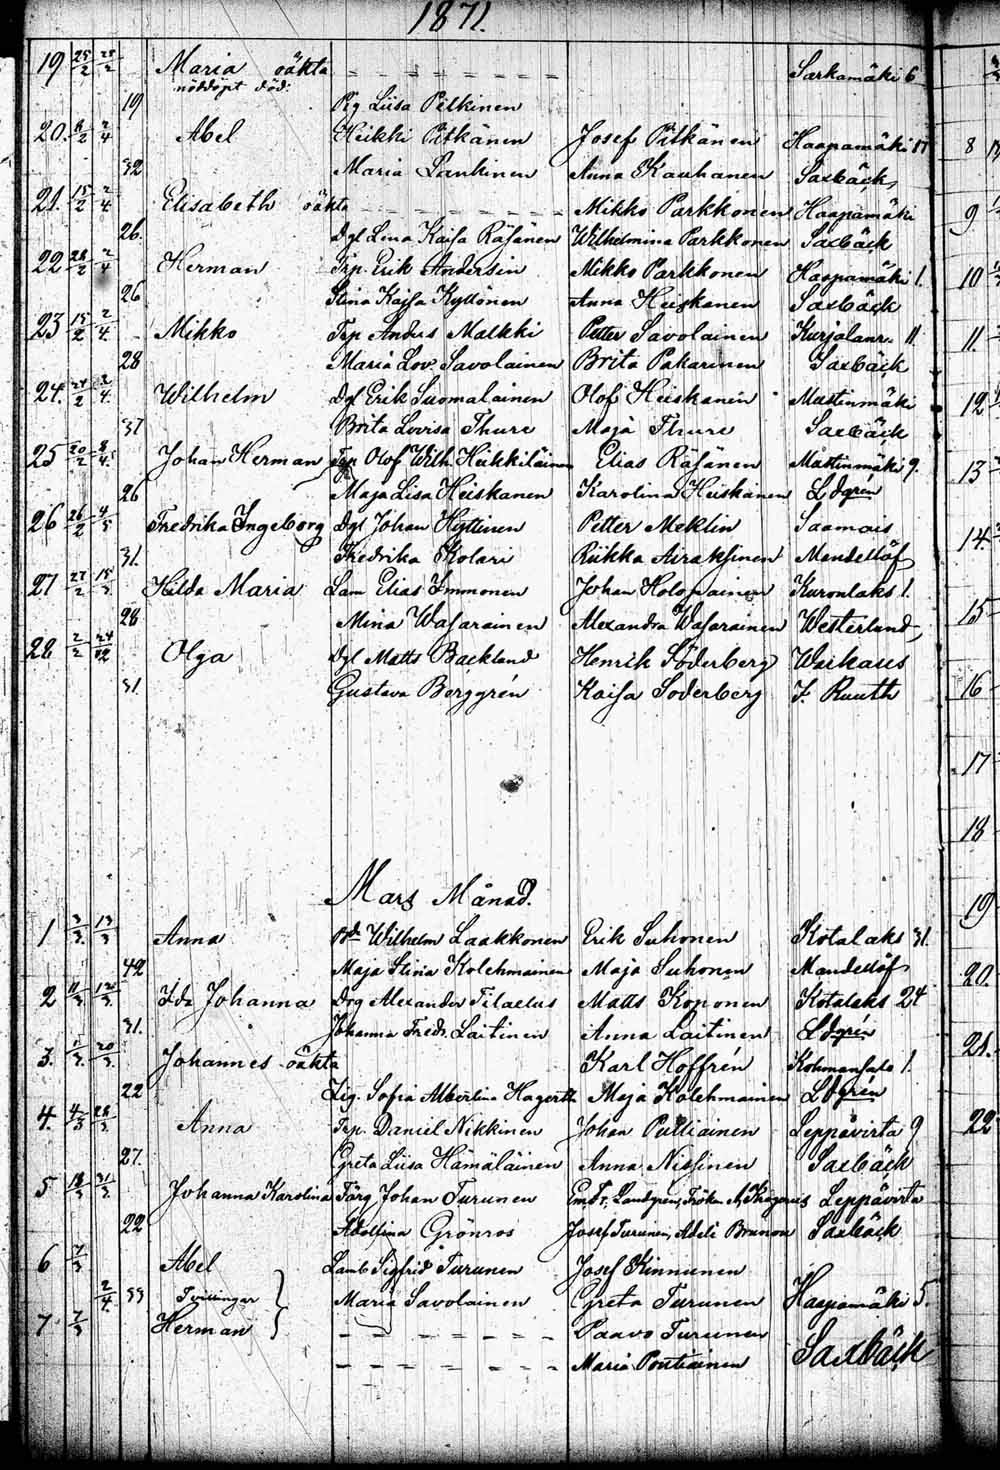 1871.
19 25/2 25/2 Maria oäkta - - - - - - - Sarkamäki 6
nöddöpt död.
19 Pig Liisa Pitkinen
20. 8/2 2/4 Abel Heikki Pitkänen Josef Pitkänen Haapamäki 17 8
32 Maria Lankinen Anna Kauhanen Saxbäck
21. 15/2 2/4 Elisabeth oäkta - - - - - - Mikko Parkkonen Haapamäki 9
26. Dgl Lena Kaisa Räsänen Wilhelmina Parkkonen Saxbäck
22 28/2 2/4 Herman Trp. Erik Andersin Mikko Parkkonen Haapamäki 1. 10
26 Stina Kaisa Kyllönen Anna Heiskanen Saxbäck
23 15/2 2/4. Mikko Trp Anders Malkki Petter Savolainen Kurjalanr. 11. 11.
28 Maria Lov. Savolainen Brita Pakarinen Saxbäck
24. 24/2 2/4. Wilhelm Dgl Erik Suomalainen Olof Heiskanen Mustinmäki 12
37 Brita Lovisa Thure Maja Thure Saxbäck
25 20/2 8/4. Johan Herman Trp Olof Wilh. Heikkiläinen Elias Räsänen Mustinmäki 9. 13
26 Maja Lisa Heiskanen Karolina Heiskanen Ldgrén
26 26/2 4/5 Fredrika Ingeborg Dgl Johan Hyttinen Petter Meklin Saamais 14.
31. Fredrika Kolari Riikka Airaksinen Mandellöf
27 27/2 15/3 Hilda Maria Lam Elias Immonen Johan Holopainen Kuronlaks 1.
28 Mina Wasarainen Alexandra Wasarainen Westerlund 15
28 2/2 24/12 Olga Dgl Matts Backlund Henrik Söderberg Warkaus
31. Gustava Berggrén Kaisa Soderberg F. Ruuth 16
17
18
Mars Månad. 19
1 3/3. 13/3 Anna Wilhelm Laakkonen Erik Suhonen Kotalaks 31.
42 Maja Stina Kolehmainen Maja Suhonen Mandellöf 20.
2 11/3 12/3 Ida Johanna Drg Alexander Tilaeus Matts Koponen Kotalaks 24
31. Johanna Fredr. Laitinen Anna Laitinen Ldgrén
3. 1/3. 20/3. Johannes oäkta Karl Hoffrén 1. 21.
22 Pig. Sofia Albertina Hagerth Maja Kolehmainen Ldgrén
4. 4/3 28/3. Anna Trp. Daniel Nikkinen Johan Pulliainen Leppävirta 9 22
27. Greta Liisa Hämäläinen Anna Nissinen Saxbäck
5 18/3 31/3. Johanna Karolina Färg Johan Turunen Leppävirta
22 Adolfina Grönros Josef Turunen, Adéle Brunou Saxbäck
6 7/3 Abel Lamb Sigfrid Turunen Josef Kinnunen
2/4. 33 Tvillingar Maria Savolainen Greta Turunen Haapamäki 5.
7. 7/3 Herman - - - - - - Paavo Turunen
- - - - - - - Maria Pontiainen Saxbäck